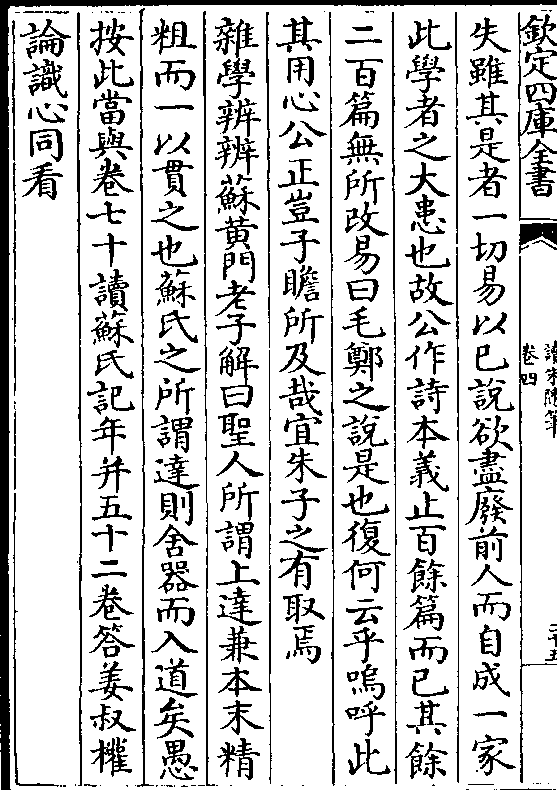 欽定四庫全書
讀朱隨筆
卷四
失雖其是者一切易以已說欲盡廢前人而自成一家
此學者之大患也故公作詩本義止百餘篇而已其餘
二百篇無所改易曰毛鄭之說是也復何云乎嗚呼此
其用心公正豈子瞻所及哉宜朱子之有取焉
雜學辨辨蘇黃門老子解曰聖人所謂上達兼本末精
粗而一以貫之也蘇氏之所謂達則舍器而入道矣愚
按此當與卷七十讀蘇氏記年并五十二卷答姜叔權
論識心同看